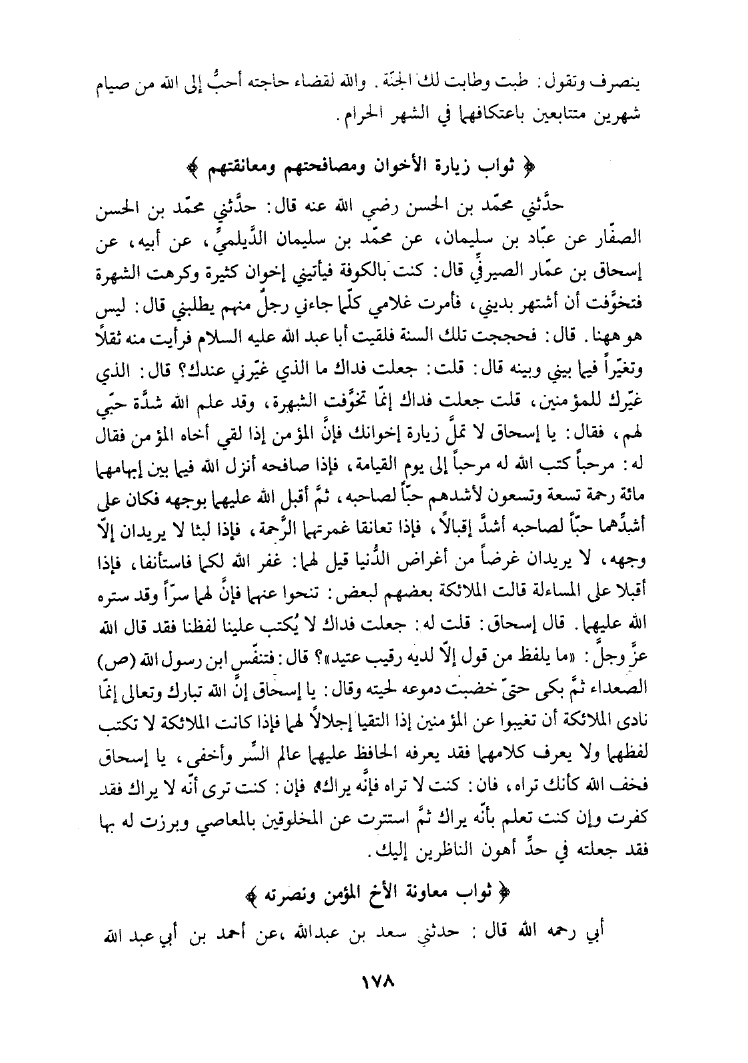 ينصرف وتقول: طبت وطابت لك الجنّة. والله لقضاء حاجته أحبُّ إلى الله من صيام
شهرين متتابعين باعتكافهما في الشهر الحرام.
﴿ ثواب زيارة الأخوان ومصافحتهم ومعانقتهم ﴾
حدَّثني محمّد بن الحسن رضي الله عنه قال: حدَّثني محمّد بن الحسن
الصفّار عن عبّاد بن سليمان، عن محمّد بن سليمان الدَّيلميِّ، عن أبيه، عن
إسحاق بن عمّار الصيرفيِّ قال: كنت بالكوفة فيأتيني إخوان كثيرة وكرهت الشهرة
فتخوَّفت أن أشتهر بديني، فأمرت غلامي كلّما جاءني رجلٌ منهم يطلبني قال: ليس
هو ههنا. قال: فحججت تلك السنة فلقيت أبا عبد الله عليه السلام فرأيت منه ثقلاً
وتغيّراً فيما بيني وبينه قال: قلت: جعلت فداك ما الذي غيّرني عندك؟ قال: الذي
غيّرك للمؤمنين، قلت جعلت فداك إنّما تخوَّفت الشهرة، وقد علم الله شدَّة حبّي
لهم، فقال: يا إسحاق لا تملَّ زيارة إخوانك فإنَّ المؤمن إذا لقي أخاه المؤمن فقال
له: مرحباً كتب الله له مرحباً إلى يوم القيامة، فإذا صافحه أنزل الله فيما بين إبهامهما
مائة رحمة تسعة وتسعون لأشدهم حبّاً لصاحبه، ثمَّ أقبل الله عليهما بوجهه فكان على
أشدِّهما حبّاً لصاحبه أشدَّ إقبالاً، فإذا تعانقا غمرتهما الرَّحمة، فإذا لبثا لا يريدان إلاّ
وجهه، لا يريدان غرضاً من أغراض الدُّنيا قيل لهما: غفر الله لكما فاستأنفا، فإذا
أقبلا على المساءلة قالت الملائكة بعضهم لبعض: تنحوا عنهما فإنَّ لهما سرّاً وقد ستره
الله عليهما. قال إسحاق: قلت له: جعلت فداك لا يُكتب علينا لفظنا فقد قال الله
عزَّ وجلَّ: «ما يلفظ من قول إلاّ لديه رقيب عتيد»؟ قال: فتنفّس ابن رسول الله (ص)
الصعداء ثمَّ بكى حتىّ خضبت دموعه لحيته وقال: يا إسحاق إنَّ الله تبارك وتعالى إنّما
نادى الملائكة أن تغيبوا عن المؤمنين إذا التقيا إجلالاً لهما فإذا كانت الملائكة لا تكتب
لفظهما ولا يعرف كلامهما فقد يعرفه الحافظ عليهما عالم السِّر وأخفى، يا إسحاق
فخف الله كأنك تراه، فان: كنت لا تراه فإنَّه يراك، فإن: كنت ترى أنّه لا يراك فقد
كفرت وإن كنت تعلم بأنّه يراك ثمَّ استترت عن المخلوقين بالمعاصي وبرزت له بها
فقد جعلته في حدِّ أهون الناظرين إليك.
﴿ ثواب معاونة الأخ المؤمن ونصرته ﴾
أبي رحمه الله قال: حدثني سعد بن عبدالله ،عن أحمد بن أبي عبد الله
١٧٨